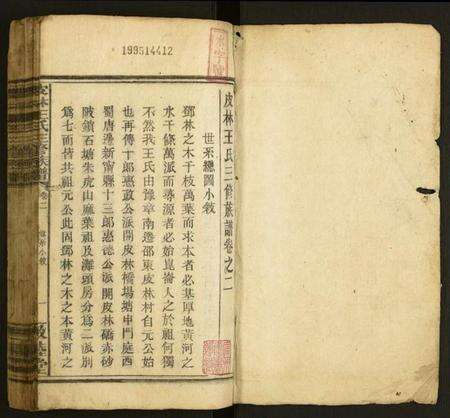 199514412
皮林王氏三修族譜卷之二
世系總圖小敘
鄧林之木千枝萬葉而求本者必基厚地黃河之
水千條萬派而尋源者必始崑崙人之於祖何獨
不然我王氏由豫章南遷邵東皮林村自元公始
也再傳十郎惠政公派開皮林橋場塘申門庭西
蜀唐灣新甯縣十三郎惠德公派開皮林礄赤砂
陂鎖石塘朱虎山麻葉祖及灘頭房分為二派別
為七而皆共祖元公此固鄧林之木之本黃河之
皮林王氏三修族譜
卷二
世系小敘
一